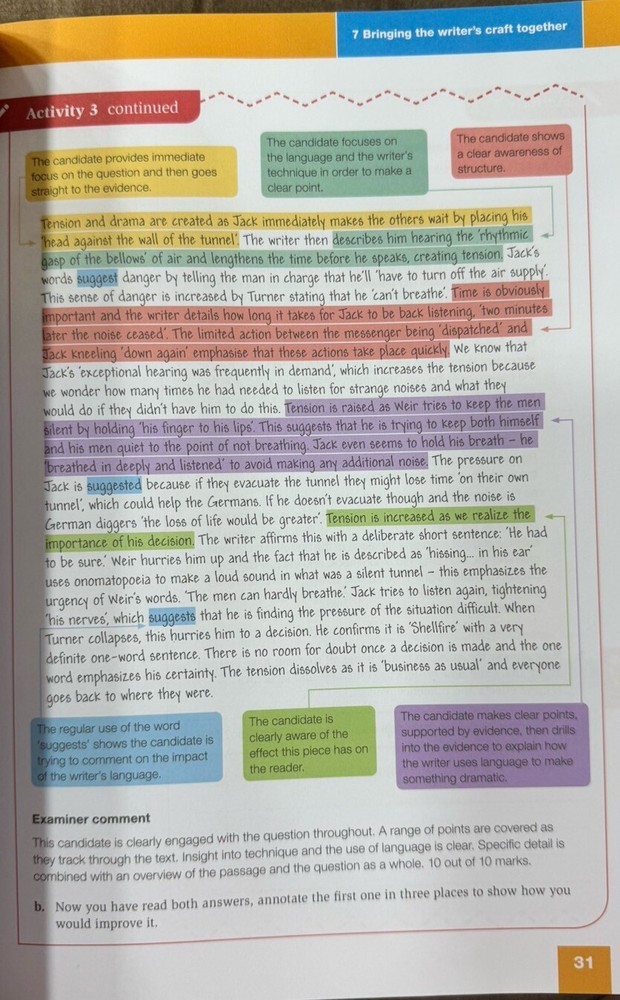 7 Bringing the writer's craft together
Activity 3 continued
The candidate provides immediate
focus on the question and then goes
straight to the evidence.
The candidate focuses on
the language and the writer's
technique in order to make a
clear point.
The candidate shows
a clear awareness of
structure.
Tension and drama are created as Jack immediately makes the others wait by placing his
'head against the wall of the tunnel'. The writer then describes him hearing the 'rhythmic
gasp of the bellows' of air and lengthens the time before he speaks, creating tension. Jack's
words suggest danger by telling the man in charge that he'll 'have to turn off the air supply'.
This sense of danger is increased by Turner stating that he 'can't breathe'. Time is obviously
important and the writer details how long it takes for Jack to be back listening, 'two minutes
later the noise ceased'. The limited action between the messenger being 'dispatched' and
Jack kneeling 'down again' emphasise that these actions take place quickly. We know that
Jack's 'exceptional hearing was frequently in demand', which increases the tension because
we wonder how many times he had needed to listen for strange noises and what they
would do if they didn't have him to do this. Tension is raised as Weir tries to keep the men
silent by holding 'his finger to his lips'. This suggests that he is trying to keep both himself
and his men quiet to the point of not breathing. Jack even seems to hold his breath – he
'breathed in deeply and listened' to avoid making any additional noise. The pressure on
Jack is suggested because if they evacuate the tunnel they might lose time 'on their own
tunnel', which could help the Germans. If he doesn't evacuate though and the noise is
German diggers 'the loss of life would be greater'. Tension is increased as we realize the
importance of his decision. The writer affirms this with a deliberate short sentence: 'He had
to be sure.' Weir hurries him up and the fact that he is described as 'hissing... in his ear'
uses onomatopoeia to make a loud sound in what was a silent tunnel – this emphasizes the
urgency of Weir's words. 'The men can hardly breathe.' Jack tries to listen again, tightening
'his nerves', which suggests that he is finding the pressure of the situation difficult. When
Turner collapses, this hurries him to a decision. He confirms it is 'Shellfire' with a very
definite one-word sentence. There is no room for doubt once a decision is made and the one
word emphasizes his certainty. The tension dissolves as it is 'business as usual' and everyone
goes back to where they were.
The regular use of the word
'suggests' shows the candidate is
trying to comment on the impact
of the writer's language.
The candidate is
clearly aware of the
effect this piece has on
the reader.
The candidate makes clear points,
supported by evidence, then drills
into the evidence to explain how
the writer uses language to make
something dramatic.
Examiner comment
This candidate is clearly engaged with the question throughout. A range of points are covered as
they track through the text. Insight into technique and the use of language is clear. Specific detail is
combined with an overview of the passage and the question as a whole. 10 out of 10 marks.
b. Now you have read both answers, annotate the first one in three places to show how you
would improve it.
31